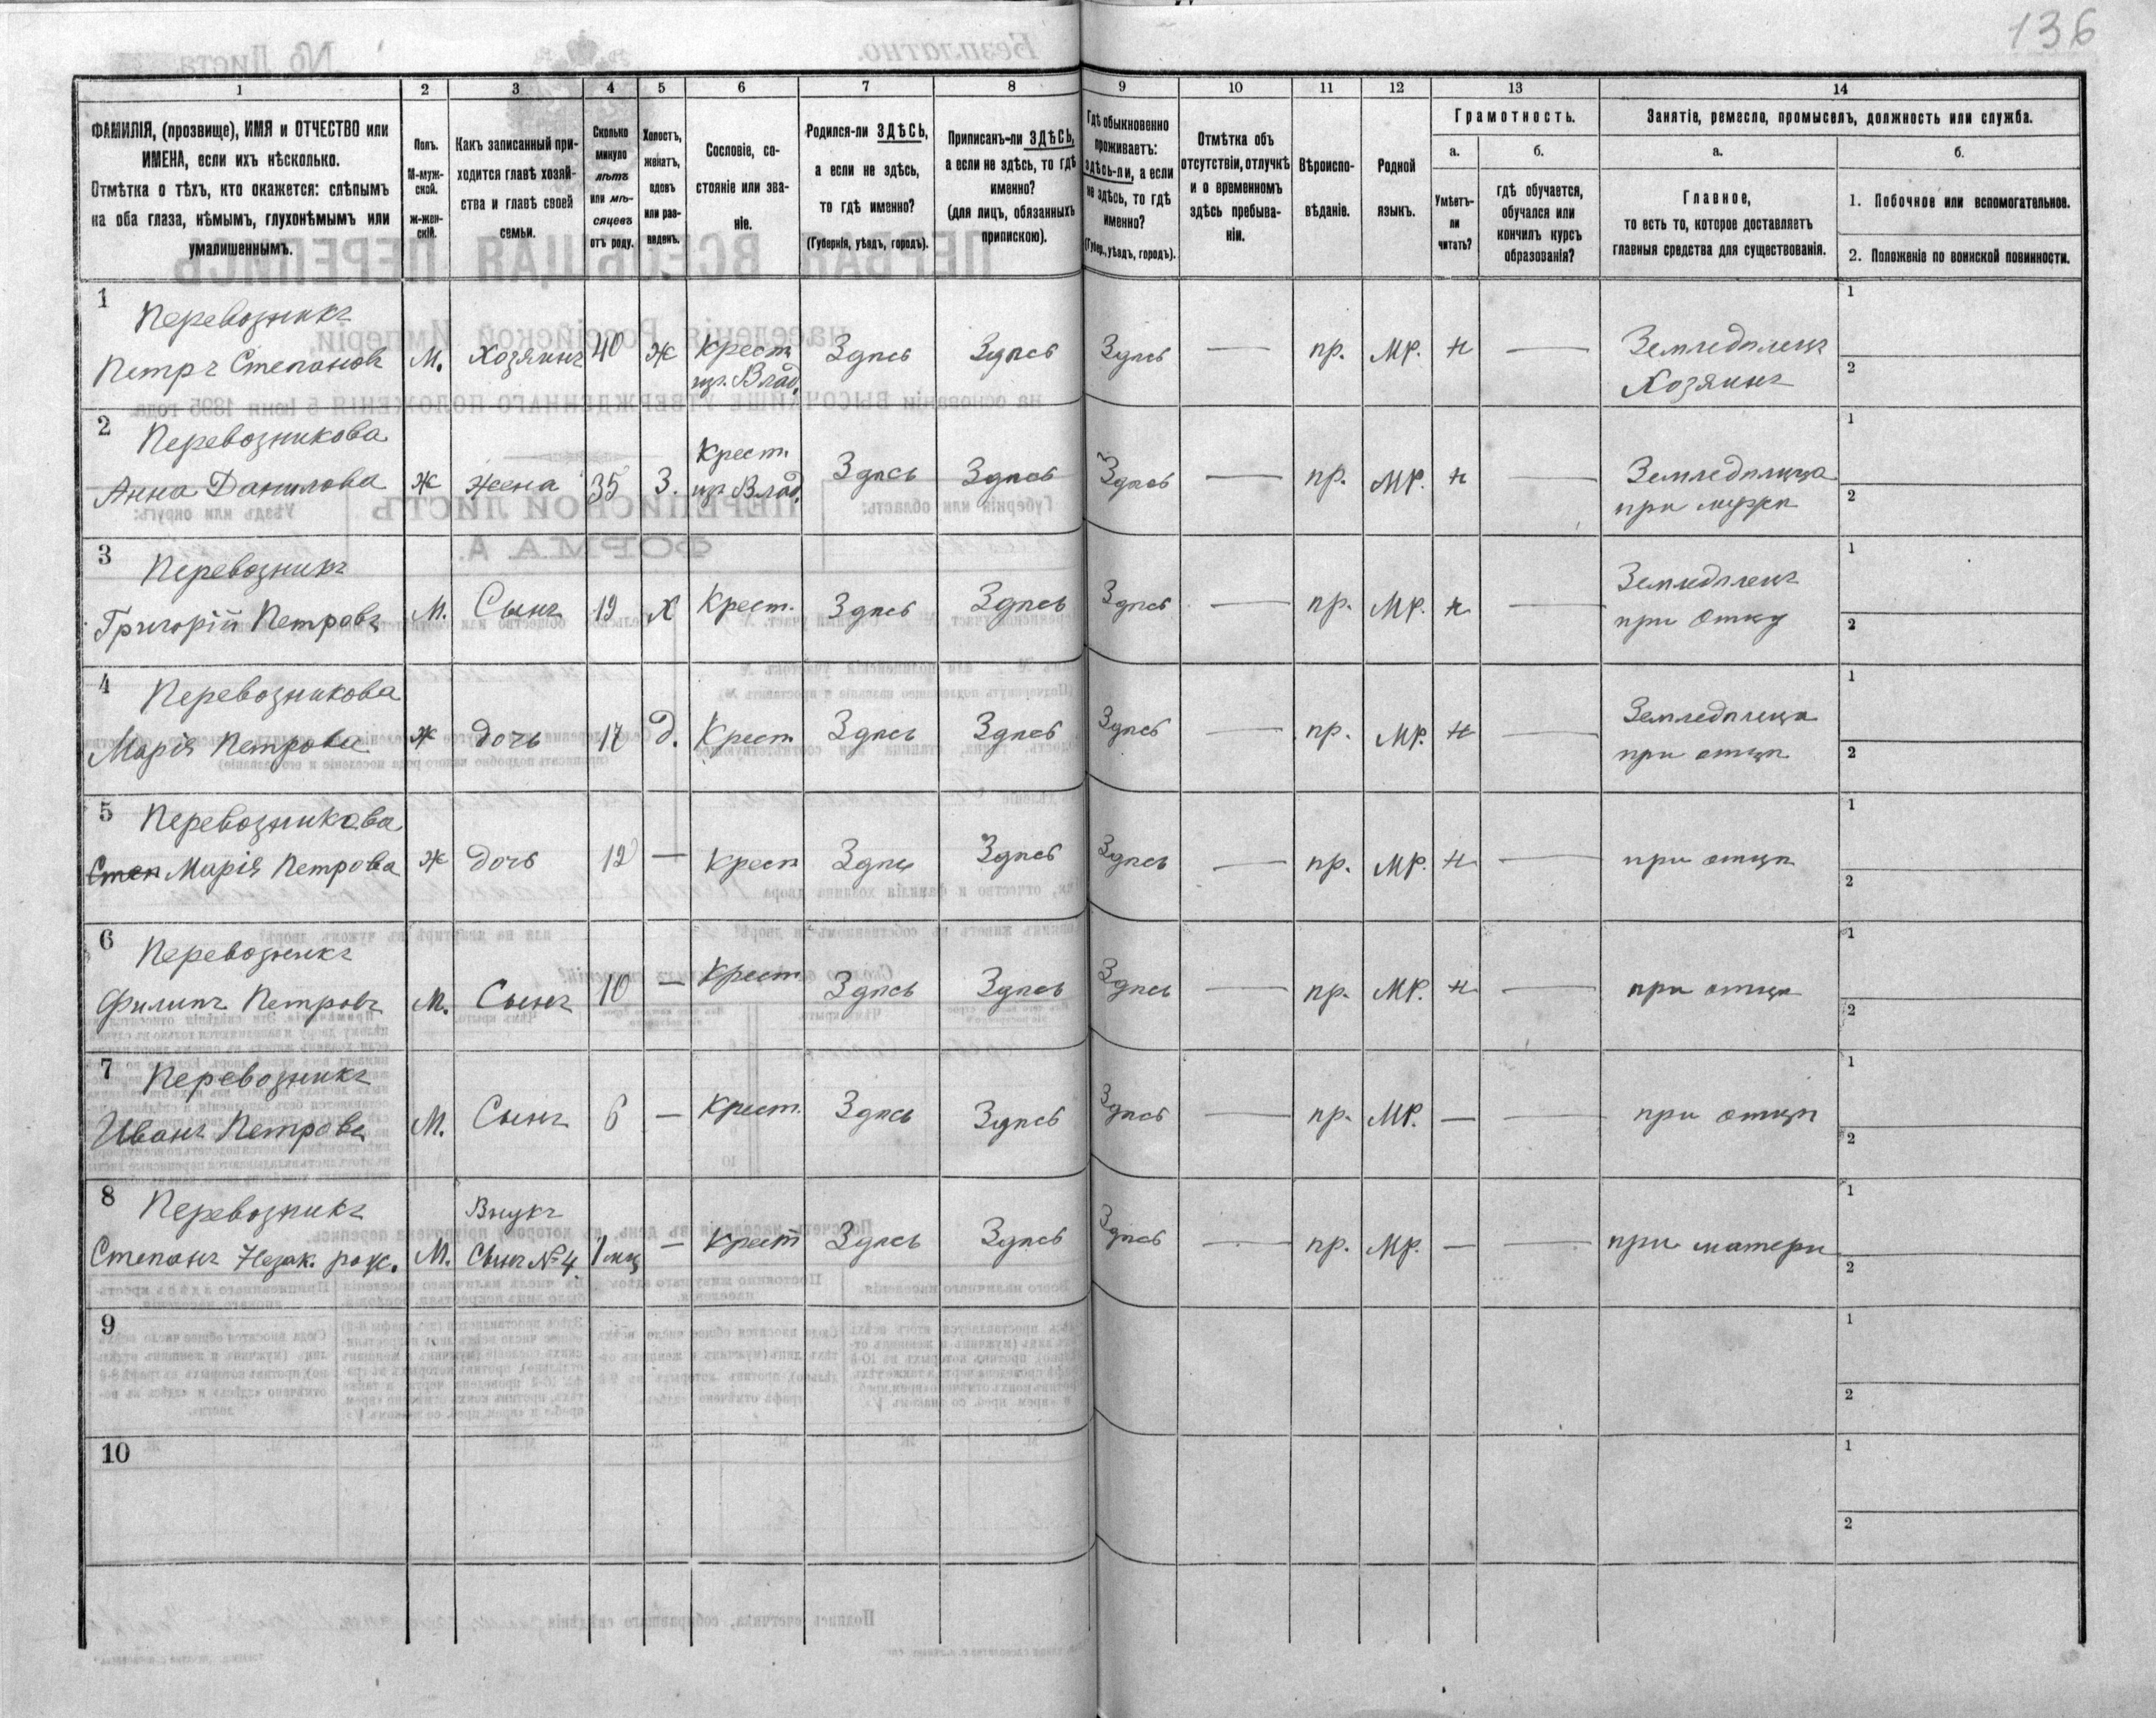 136
1 2 3 4 5 6 7 8 9 10 11 12 13 14
ФАМИЛІЯ, (прозвище), ИМЯ и ОТЧЕСТВО или
ИМЕНА, если ихъ нѣсколько.
Отмѣтка о тѣхъ, кто окажется: слѣпымъ
на оба глаза, нѣмымъ, глухонѣмымъ или
умалишеннымъ.
Полъ.
М-муж-
ской.
Ж-жен-
скій.
Какъ записанный при-
ходится главѣ хозяй-
ства и главѣ своей
семьи.
Сколько
минуло
лѣтъ
или мѣ-
сяцевъ
отъ роду.
Холостъ,
женатъ,
вдовъ
или раз-
веденъ.
Сословіе, со-
стояніе или зва-
ніе.
Родился-ли ЗДѢСЬ,
а если не здѣсь,
то гдѣ именно?
(Губернія, уѣздъ, городъ).
Приписанъ-ли ЗДѢСЬ,
а если не здѣсь, то гдѣ
именно?
(для лицъ, обязанныхъ
припискою).
Гдѣ обыкновенно
проживаетъ:
здѣсь-ли, а если
не здѣсь, то гдѣ
именно?
(Губер., уѣздъ, городъ).
Отмѣтка объ
отсутствіи, отлучкѣ
и о временномъ
здѣсь пребыва-
ніи.
Вѣроиспо-
вѣданіе.
Родной
языкъ.
Грамотность.
а.
Умѣетъ-
ли
читать?
б.
гдѣ обучается,
обучался или
кончилъ курсъ
образованія?
Занятіе, ремесло, промыселъ, должность или служба.
а.
Главное,
то есть то, которое доставляетъ
главныя средства для существованія.
б.
1. Побочное или вспомогательное.
2. Положеніе по воинской повинности.
1 Перевозникъ
Петръ Степановъ М. Хозяинъ 40 Ж Крест. из. Влад. Здѣсь Здѣсь Здѣсь — пр. МР. н — Земледѣлецъ
Хозяинъ
1
2
2 Перевозникова
Анна Данилова Ж Жена 35 З. Крест. из. Влад. Здѣсь Здѣсь Здѣсь — пр. МР. н — Земледѣлица
при мужѣ
1
2
3 Перевозникъ
Григорій Петровъ М. Сынъ 19 Х Крест. Здѣсь Здѣсь Здѣсь — пр. МР. н — Земледѣлецъ
при Отцу
1
2
4 Перевозникова
Марія Петрова Ж дочь 17 д. Крест. Здѣсь Здѣсь Здѣсь — пр. МР. н — Земледѣлица
при отцѣ
1
2
5 Перевозникова
Степ Марія Петрова Ж дочь 12 — Крест Здѣсь Здѣсь Здѣсь — пр. МР. н — при отцѣ
1
2
6 Перевозникъ
Филипъ Петровъ М. Сынъ 10 — Крест Здѣсь Здѣсь Здѣсь — пр. МР. н — при отцѣ
1
2
7 Перевозникъ
Иванъ Петровъ М. Сынъ 6 — Крест. Здѣсь Здѣсь Здѣсь — пр. МР. — — при отцѣ
1
2
8 Перевозникъ Внукъ
Степанъ Незак. рож. М. Сынъ №4. 1 мц — Крест Здѣсь Здѣсь Здѣсь — пр. МР. — — при матери
1
2
9
1
2
10
1
2